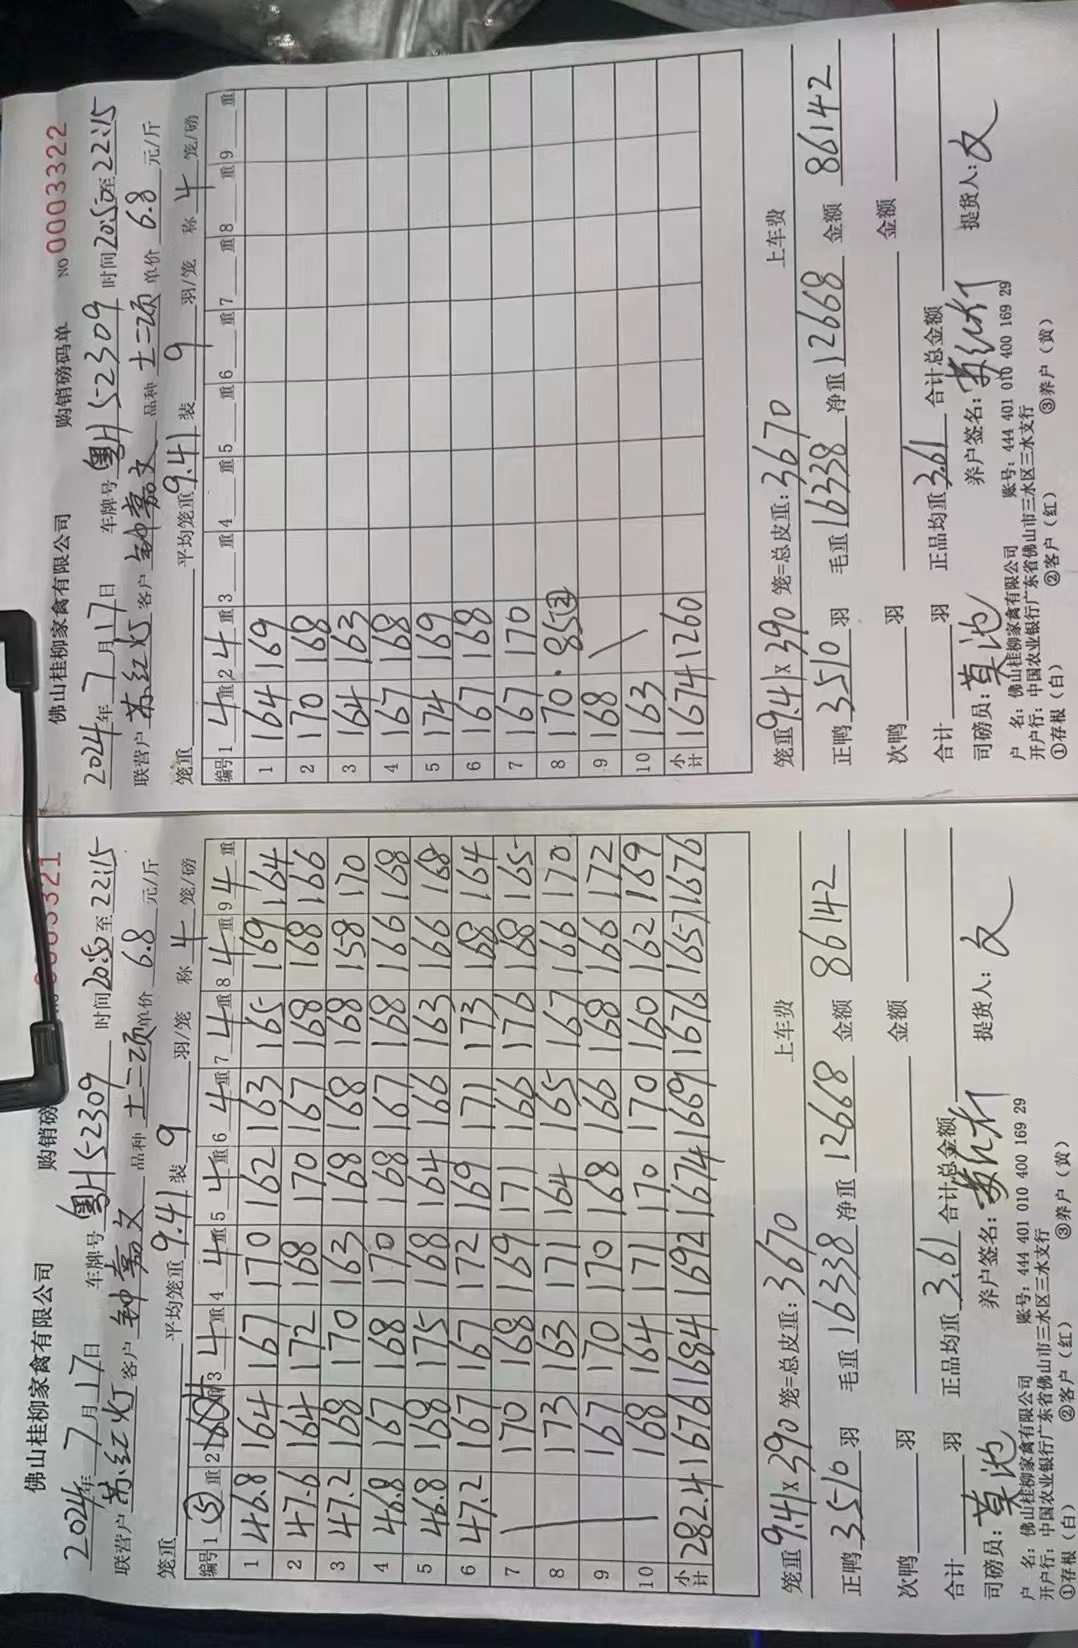 佛山桂柳家禽有限公司 购销磅
2024年7月17日 车牌号 粤H52309 时间20:50至22:15
联营户 苏红灯 客户 钟嘉文 品种 土二项 单价 6.8 元/斤
笼重 平均笼重 9.41 装 9 羽/笼 称 4 笼/磅
编号 1 ⑤ 重 2 重 3 4 重 4 4 重 5 4 重 6 4 重 7 4 重 8 4 重 9 4 重
1 46.8 164 167 170 162 163 165 169 164
2 47.6 164 172 168 170 167 168 168 166
3 47.2 168 170 163 168 168 168 158 170
4 46.8 167 168 170 168 167 168 166 168
5 46.8 168 175 168 164 166 163 166 168
6 47.2 167 167 172 169 171 173 168 164
7 170 168 169 171 166 176 168 165
8 173 163 171 164 165 167 166 170
9 167 170 170 168 166 168 166 172
10 168 164 171 170 170 160 162 169
小计 282.4 1676 1684 1692 1674 1669 1676 1657 1676
笼重 9.41 x 390 笼=总皮重: 3670 上车费
正鸭 3510 羽 毛重 16338 净重 12668 金额 86142
次鸭 羽 金额
合计 羽 正品均重 3.61 合计总金额
司磅员: 莫池 养户签名: 苏红灯 提货人: 文
户 名: 佛山桂柳家禽有限公司 账号: 444 401 010 400 169 29
开户行: 中国农业银行广东省佛山市三水区三水支行
①存根(白) ②客户(红) ③养户(黄)
佛山桂柳家禽有限公司 购销磅码单 NO 0003322
2024年7月17日 车牌号 粤H52309 时间20:50至22:15
联营户 苏红灯 客户 钟嘉文 品种 土二项 单价 6.8 元/斤
笼重 平均笼重 9.41 装 9 羽/笼 称 4 笼/磅
编号 1 4 重 2 4 重 3 重 4 重 5 重 6 重 7 重 8 重 9 重
1 164 169
2 170 168
3 164 163
4 167 168
5 174 169
6 167 168
7 167 170
8 170 · 85②
9 168
10 163
小计 1674 1260
笼重 9.41 x 390 笼=总皮重: 3670 上车费
正鸭 3510 羽 毛重 16338 净重 12668 金额 86142
次鸭 羽 金额
合计 羽 正品均重 3.61 合计总金额
司磅员: 莫池 养户签名: 苏红灯 提货人: 文
户 名: 佛山桂柳家禽有限公司 账号: 444 401 010 400 169 29
开户行: 中国农业银行广东省佛山市三水区三水支行
①存根(白) ②客户(红) ③养户(黄)